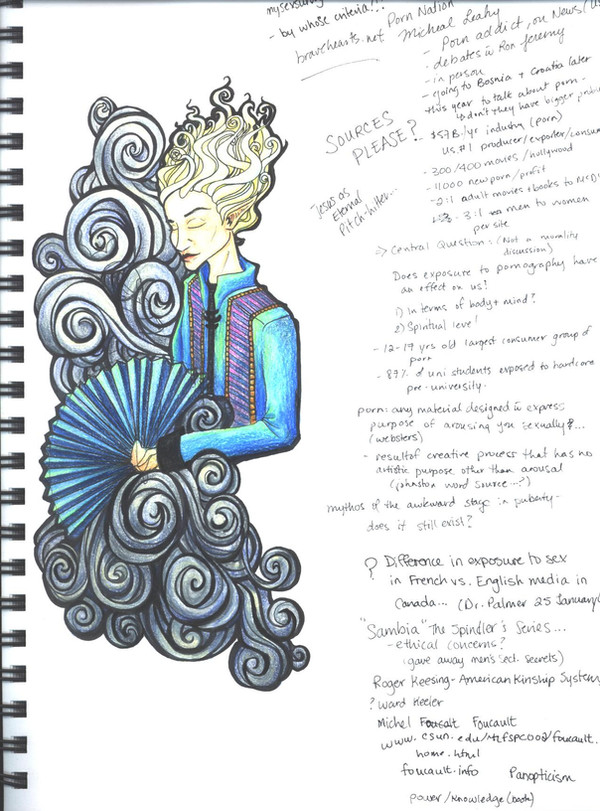 - by whose criteria?!!
Porn Nation
bravehearts.net Micheal Leahy
- Porn addict, on News/
- debates w Ron Jeremy
- in person
- going to Bosnia + Croatia later
this year to talk about porn -
don't they have bigger
SOURCES
PLEASE?
$57B/yr industry (porn)
US #1 producer/exporter/consum
- 300/400 movies/hollywood
- 11000 new porn/profit
- 2:1 adult movies + books to McD
3:1 men to women
per site
Jesus as
Eternal
Pitch-hitter...
Central Question: (Not a morality
discussion)
Does exposure to pornography have
an effect on us!
1) In terms of body + mind?
2) Spiritual level
- 12-17 yrs old largest consumer group of
porn
- 87% of uni students exposed to hardcore
pre-university.
porn: any material designed w express
purpose of arousing you sexually?...
(websters)
- result of creative process that has no
artistic purpose other than arousal
(johnston word source...?)
mythos of the awkward stage in puberty -
does it still exist?
? Difference in exposure to sex
in French vs. English media in
Canada... (Dr. Palmer 25 January
"Sambia" The Spindler's Series...
- ethical concerns?
(gave away men's sect. secrets)
Roger Keesing - American Kinship System
? Ward Keeler
Michel Foucault
www.csun.edu/~hfspc002/foucault.
home.html
foucault.info Panopticism
power/knowledge (book)